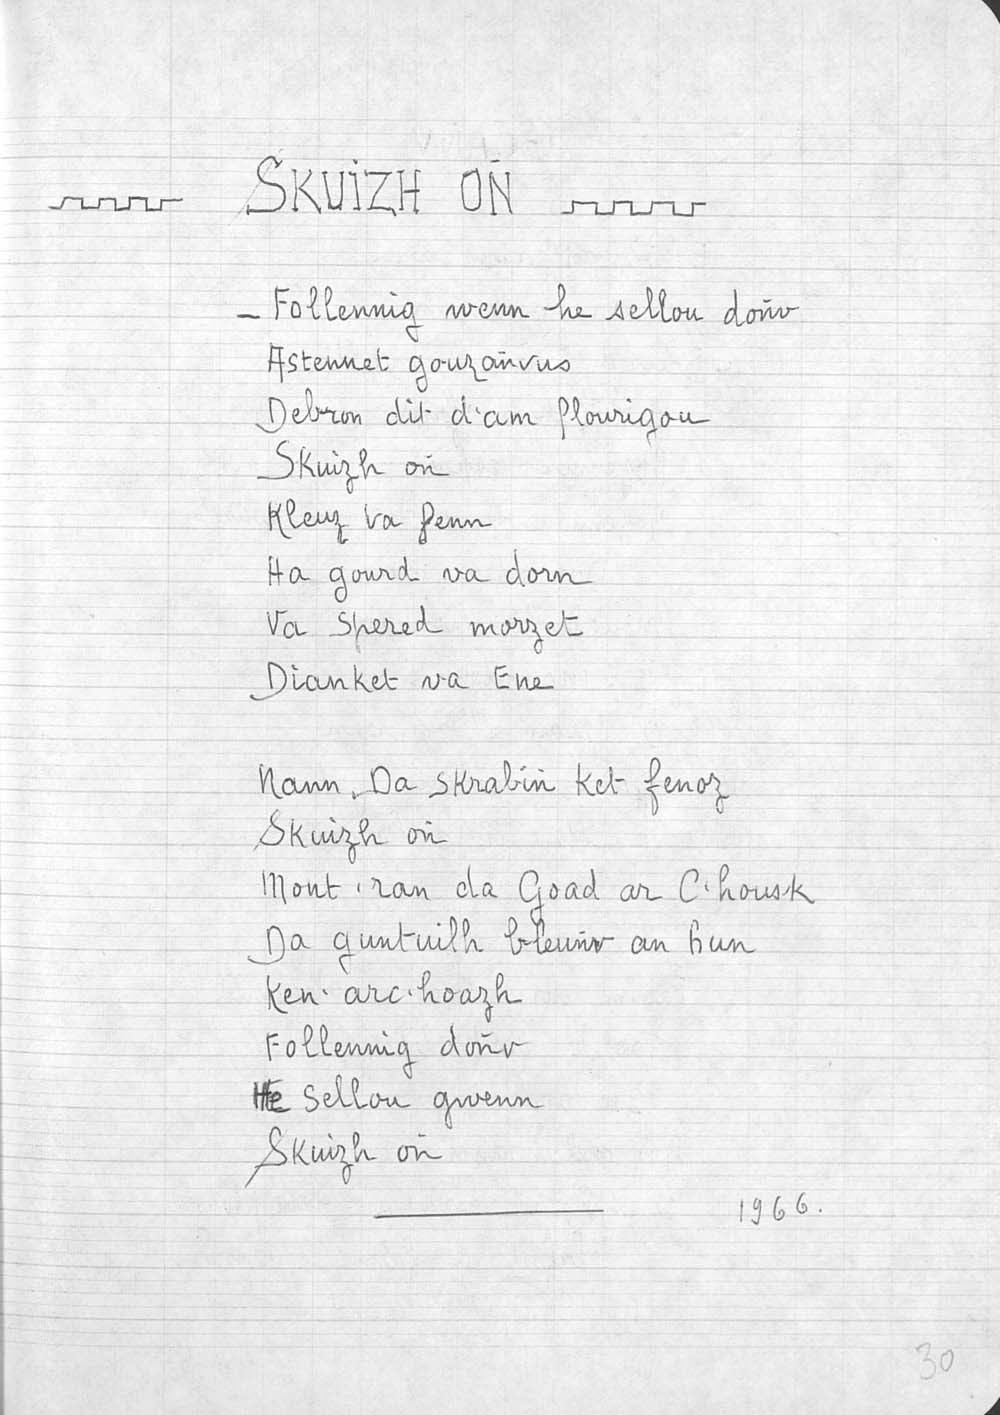 SKUIZH OÑ
_ Follennig wenn he sellou doñv
Astennet gouzañvus
Debron dit d'am flourigou
Skuizh oñ
Kleuz va fenn
Ha gourd va dorn
Va spered morzet
Dianket va Ene
Nann. Da skrabiñ ket fenoz
Skuizh oñ
Mont 'ran da Goad ar C'housk
Da guntuilh bleuñv an hun
Ken. arc'hoazh
Follennig doñv
HE sellou gwenn
Skuizh oñ
1966.
30